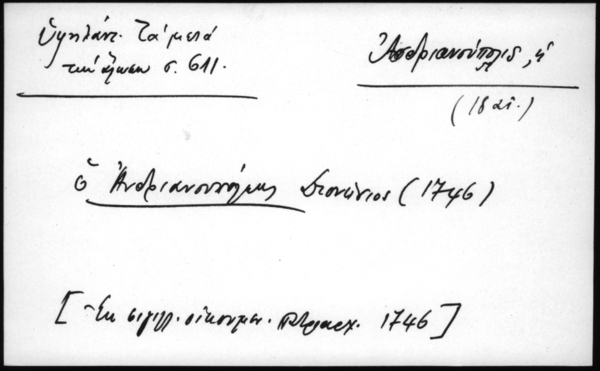 Ὑψηλάντ. Τὰ μετὰ
τὴν ἅλωσιν σ. 611.
Ἀδριανούπολις, ἡ
(18 αἰ.)
ὁ Ἀνδριανουπόλεως Διονύσιος (1746)
[Ἐκ σιγιλλ. οἰκουμεν. πατριαρχ. 1746]